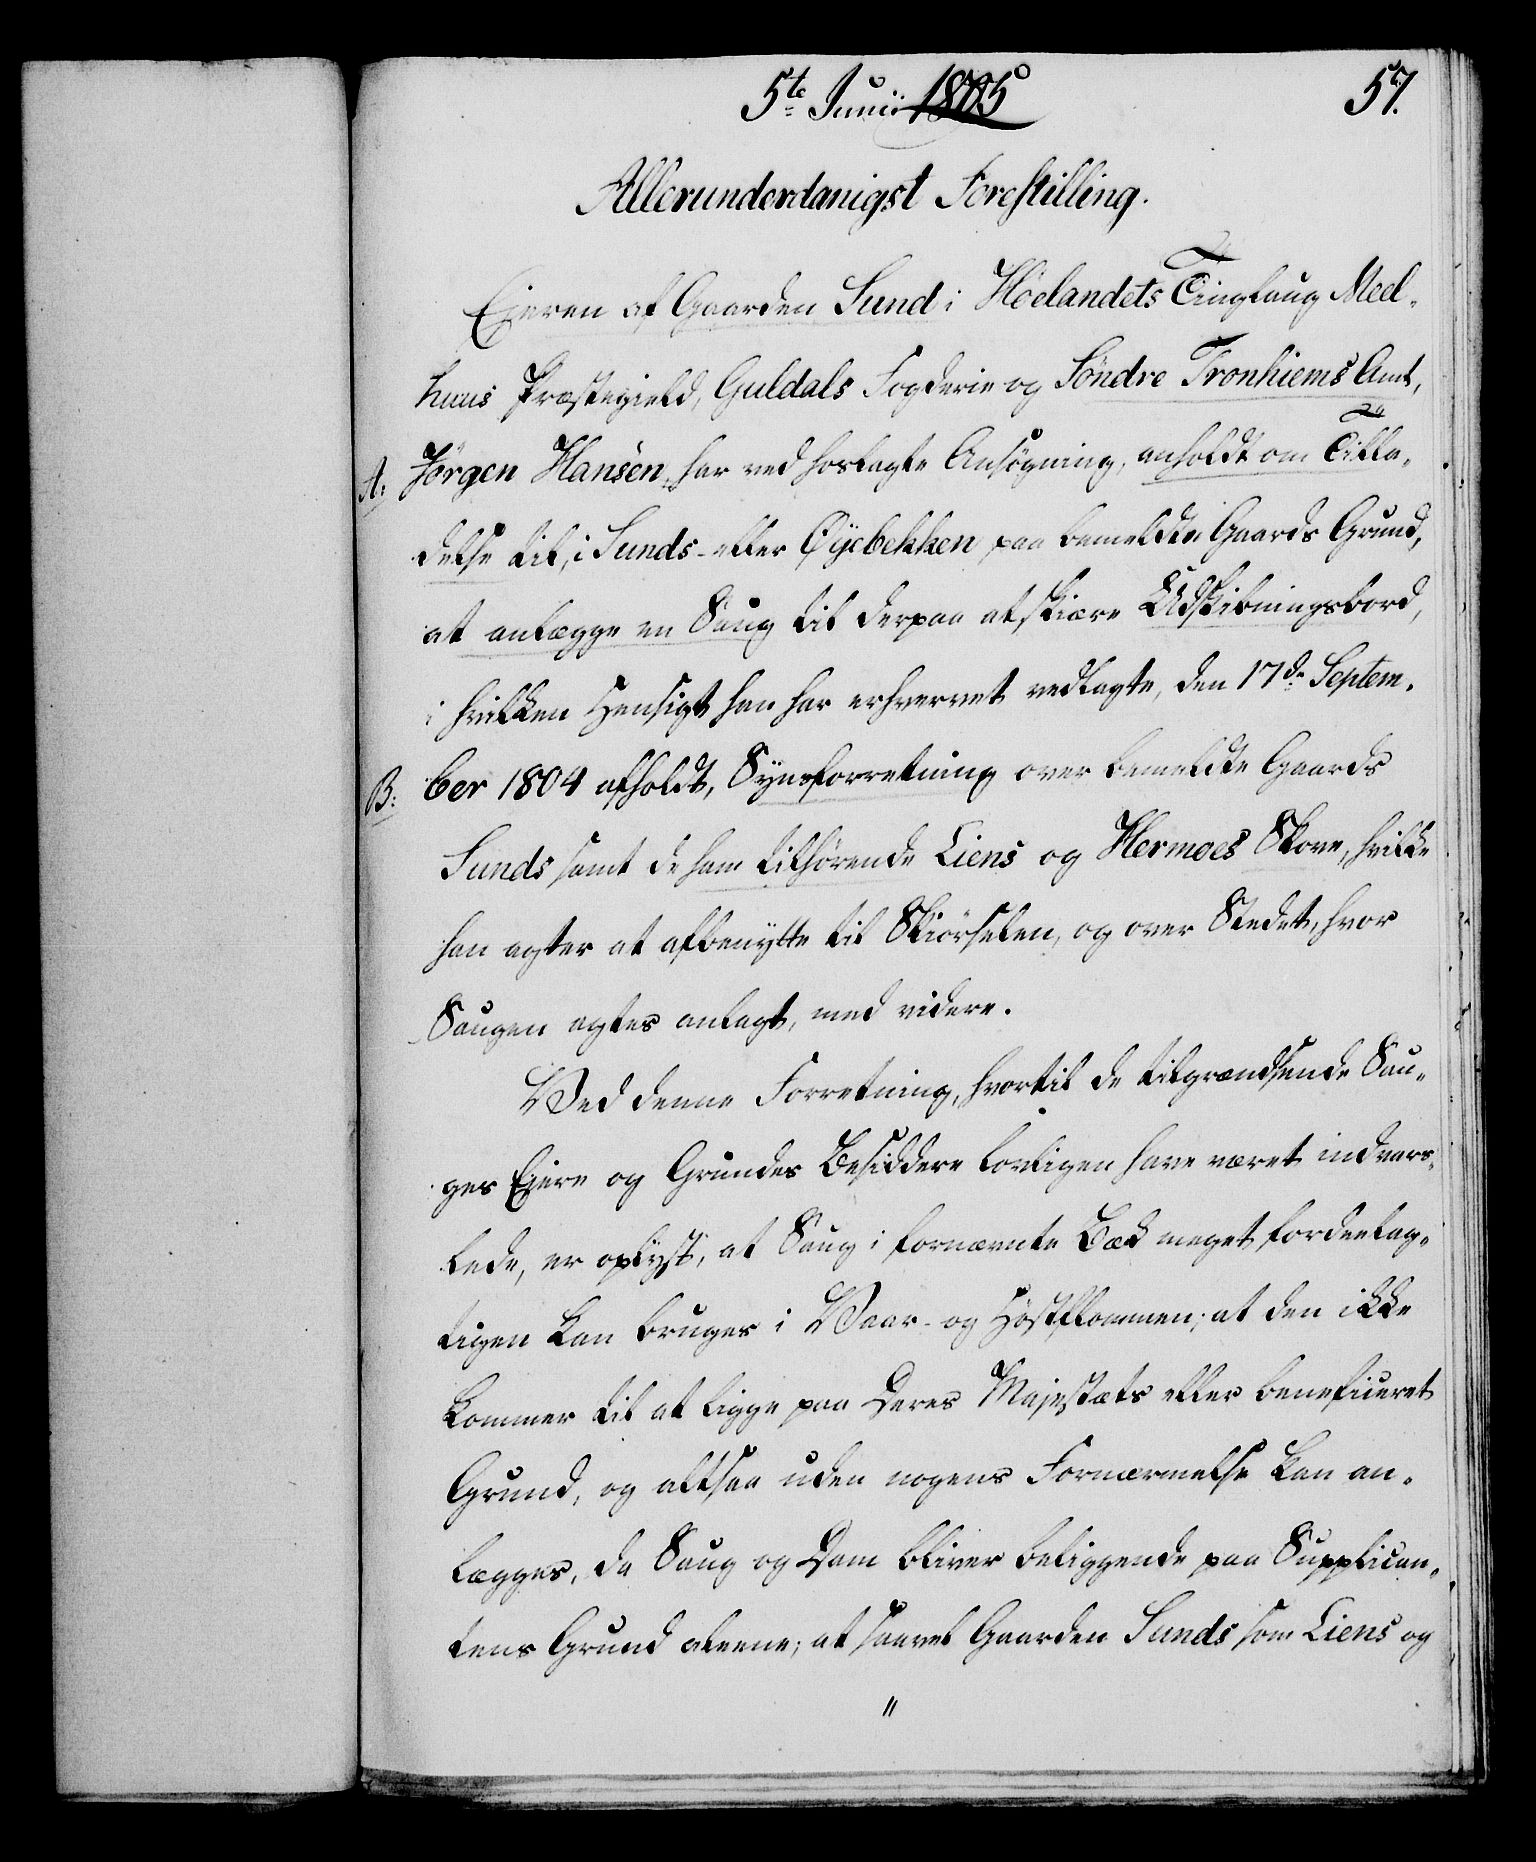 5te Junii 1805
57.
Allerunderdanigst Forestilling.
Ejeren af Gaarden Sund i Höelandets Tinglaug Meel-
huus Præstegield, Guldals Fogderie og Söndre Tronhiems Amt,
A: Jörgen Hansen, har ved hoslagte Ansögning, anholdt om Tilla-
delse til, i Sunds- eller Øyebekken paa bemeldte Gaards Grund,
at anlægge en Saug til derpaa at skiære Udskibningsbord,
i hvilken Hensigt han har erhvervet vedlagte, den 17de Septem-
B: ber 1804 afholdt, Synsforretning over bemeldte Gaards
Sunds samt de ham tilhørende Liens og Hermoes Skove, hvilke
han agter at afbenytte til Skiörselen, og over Stedet, hvor
Saugen agtes anlagt, med videre.
Ved denne Forretning, hvortil de tilgrændsende Sau-
ges Ejere og Grundes Besiddere lovligen have været indvars-
lede, er oplyst, at Saug i fornævnte Bæk meget fordeelag-
tigen kan bruges i Vaar- og Höstflommen; at den ikke
kommer til at ligge paa Deres Majestæts eller beneficeret
Grund, og altsaa uden nogens Fornærmelse kan an-
lægges, da Saug og Dam bliver beliggende paa Supplican-
tens Grund alene; at saavel Gaarden Sunds som Liens og
"